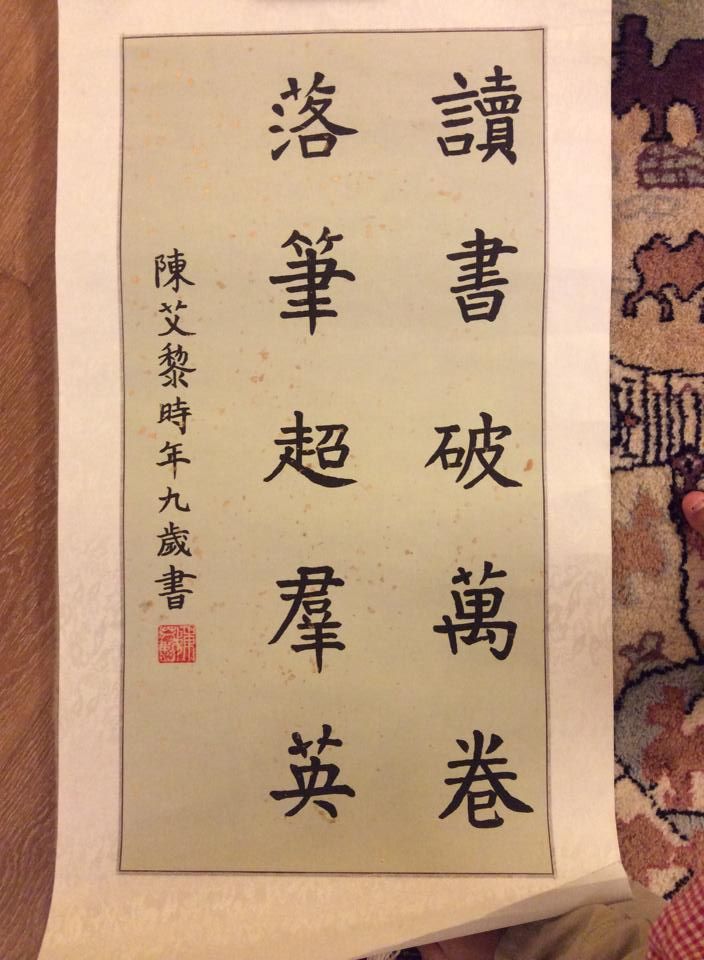 讀書破萬卷
落筆超羣英
陳艾黎時年九歲書